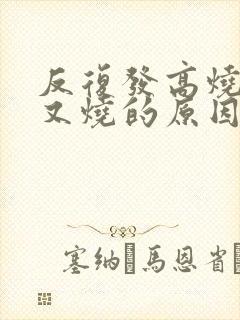 反復發高燒
又燒的原因
塞納 馬恩省